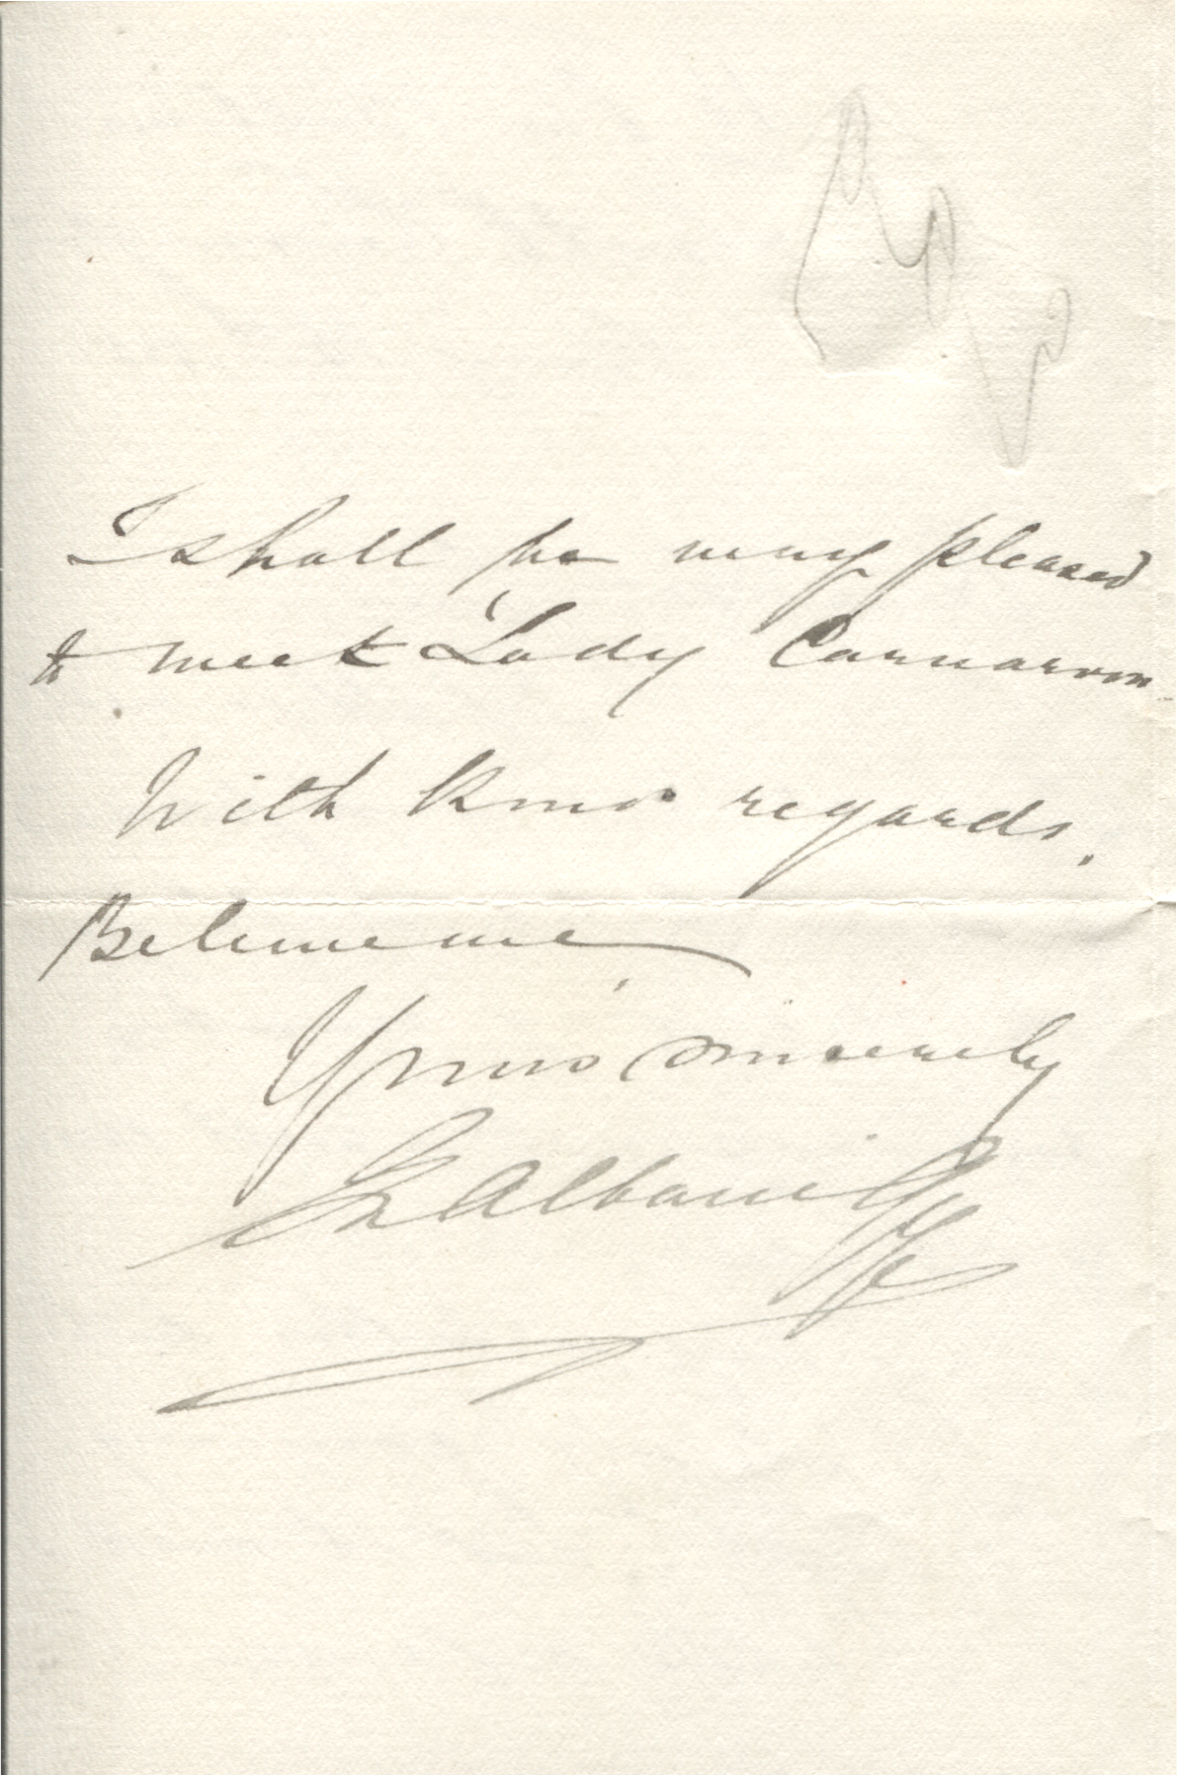 I shall be very pleased
to meet Lady Carnarvon
With kind regards.
Believe me
Yours sincerely
E Albani Gye